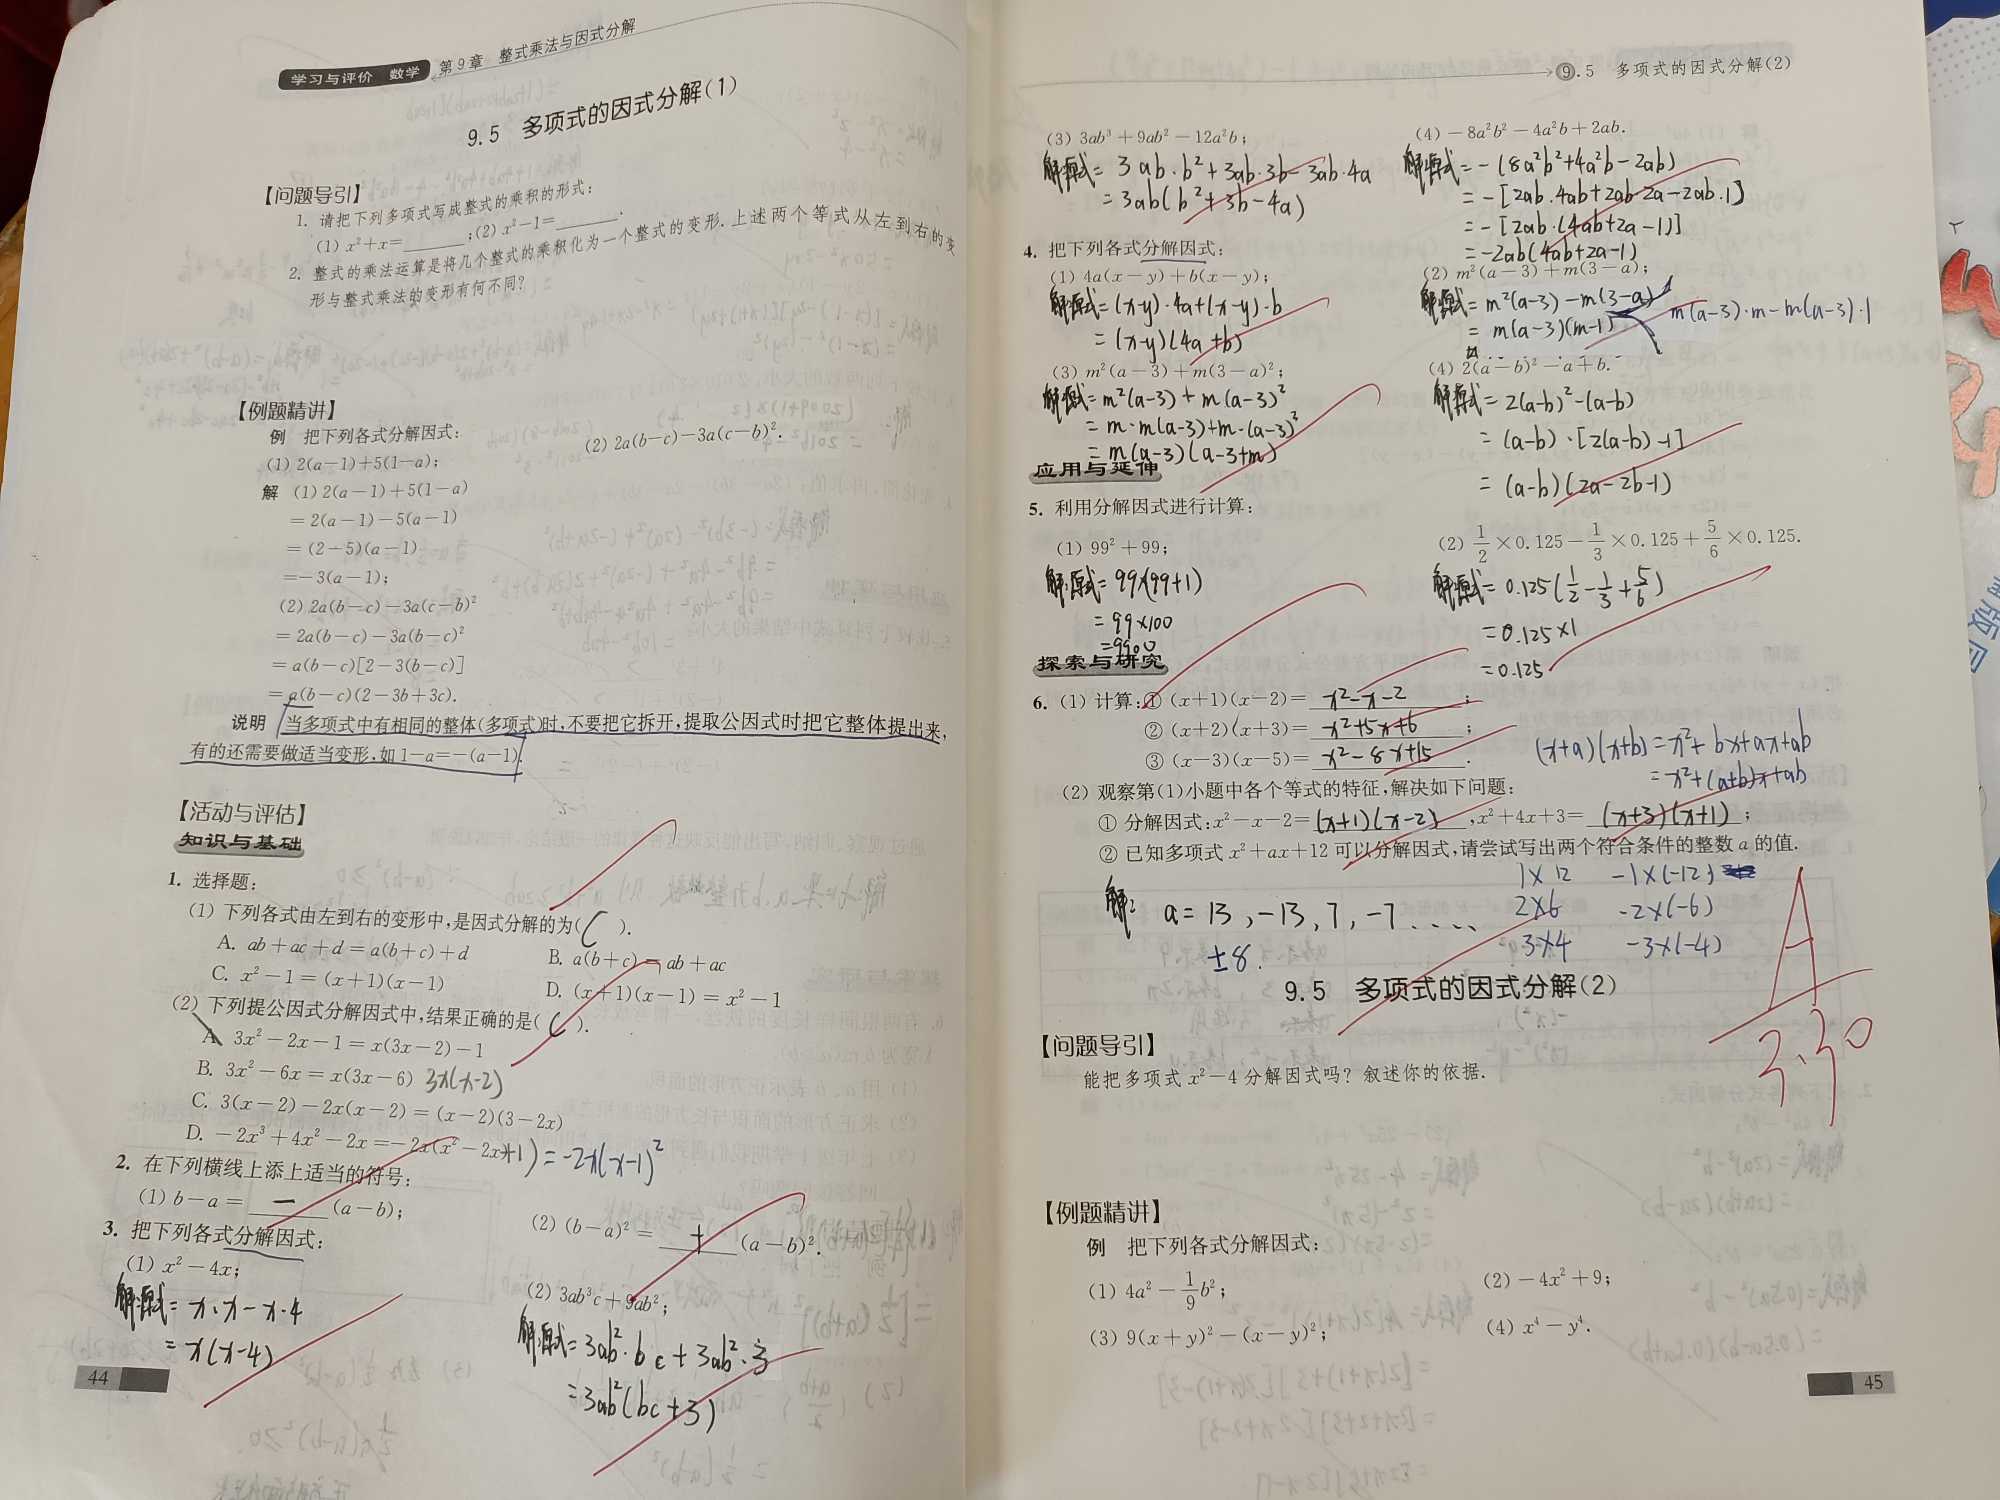 学习与评价 数学 第9章 整式乘法与因式分解
9.5 多项式的因式分解(1)
【问题导引】
1. 请把下列多项式写成整式的乘积的形式:
(1) x²+x=______;(2) x²-1=______.
2. 整式的乘法运算是将几个整式的乘积化为一个整式的变形.上述两个等式从左到右的变
形与整式乘法的变形有何不同?
【例题精讲】
例 把下列各式分解因式:
(1) 2(a-1)+5(1-a); (2) 2a(b-c)-3a(c-b)².
解 (1) 2(a-1)+5(1-a)
=2(a-1)-5(a-1)
=(2-5)(a-1)
=-3(a-1);
(2) 2a(b-c)-3a(c-b)²
=2a(b-c)-3a(b-c)²
=a(b-c)[2-3(b-c)]
=a(b-c)(2-3b+3c).
说明 当多项式中有相同的整体(多项式)时,不要把它拆开,提取公因式时把它整体提出来,
有的还需要做适当变形,如 1-a=-(a-1).
【活动与评估】
知识与基础
1. 选择题:
(1) 下列各式由左到右的变形中,是因式分解的为( C ).
A. ab+ac+d=a(b+c)+d B. a(b+c)=ab+ac
C. x²-1=(x+1)(x-1) D. (x+1)(x-1)=x²-1
(2) 下列提公因式分解因式中,结果正确的是( C ).
A. 3x²-2x-1=x(3x-2)-1
B. 3x²-6x=x(3x-6) 3x(x-2)
C. 3(x-2)-2x(x-2)=(x-2)(3-2x)
D. -2x³+4x²-2x=-2x(x²-2x+1)=-2x(x-1)²
2. 在下列横线上添上适当的符号:
(1) b-a= - (a-b); (2) (b-a)²= + (a-b)².
3. 把下列各式分解因式:
(1) x²-4x; (2) 3ab³c+9ab²;
解:原式=x·x-x·4
=x(x-4)
解:原式=3ab²·bc+3ab²·3
=3ab²(bc+3)
44
9.5 多项式的因式分解(2)
(3) 3ab³+9ab²-12a²b; (4) -8a²b²-4a²b+2ab.
解:原式=3ab·b²+3ab·3b-3ab·4a
=3ab(b²+3b-4a)
解:原式=-(8a²b²+4a²b-2ab)
=-[2ab·4ab+2ab·2a-2ab·1]
=-[2ab·(4ab+2a-1)]
=-2ab(4ab+2a-1)
4. 把下列各式分解因式:
(1) 4a(x-y)+b(x-y); (2) m²(a-3)+m(3-a);
解:原式=(x-y)·4a+(x-y)·b
=(x-y)(4a+b)
解:原式=m²(a-3)-m(3-a)
m(a-3)·m-m(a-3)·1
=m(a-3)(m-1)
(3) m²(a-3)+m(3-a)²; (4) 2(a-b)²-a+b.
解:原式=m²(a-3)+m(a-3)²
=m·m(a-3)+m·(a-3)²
=m(a-3)(a-3+m)
解:原式=2(a-b)²-(a-b)
=(a-b)·[2(a-b)-1]
=(a-b)(2a-2b-1)
应用与延伸
5. 利用分解因式进行计算:
(1) 99²+99; (2) 1/2×0.125-1/3×0.125+5/6×0.125.
解:原式=99×(99+1)
=99×100
=9900
解:原式=0.125(1/2-1/3+5/6)
=0.125×1
=0.125
探索与研究
6. (1) 计算:① (x+1)(x-2)= x²-x-2 ;
② (x+2)(x+3)= x²+5x+6 ;
③ (x-3)(x-5)= x²-8x+15 .
(x+a)(x+b)=x²+bx+ax+ab
=x²+(a+b)x+ab
(2) 观察第(1)小题中各个等式的特征,解决如下问题:
① 分解因式:x²-x-2= (x+1)(x-2) ,x²+4x+3= (x+3)(x+1) ;
② 已知多项式 x²+ax+12 可以分解因式,请尝试写出两个符合条件的整数 a 的值.
解: a=13,-13,7,-7....
±8.
1×12 -1×(-12)
2×6 -2×(-6)
3×4 -3×(-4)
A
3.30
9.5 多项式的因式分解(2)
【问题导引】
能把多项式 x²-4 分解因式吗? 叙述你的依据.
【例题精讲】
例 把下列各式分解因式:
(1) 4a²-1/9b²; (2) -4x²+9;
(3) 9(x+y)²-(x-y)²; (4) x⁴-y⁴.
45